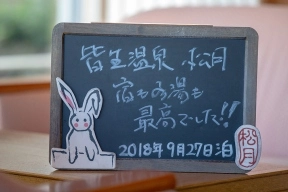 皆生温泉 松月
宿もお湯も
最高でした!!
2018年9月27日泊
松月